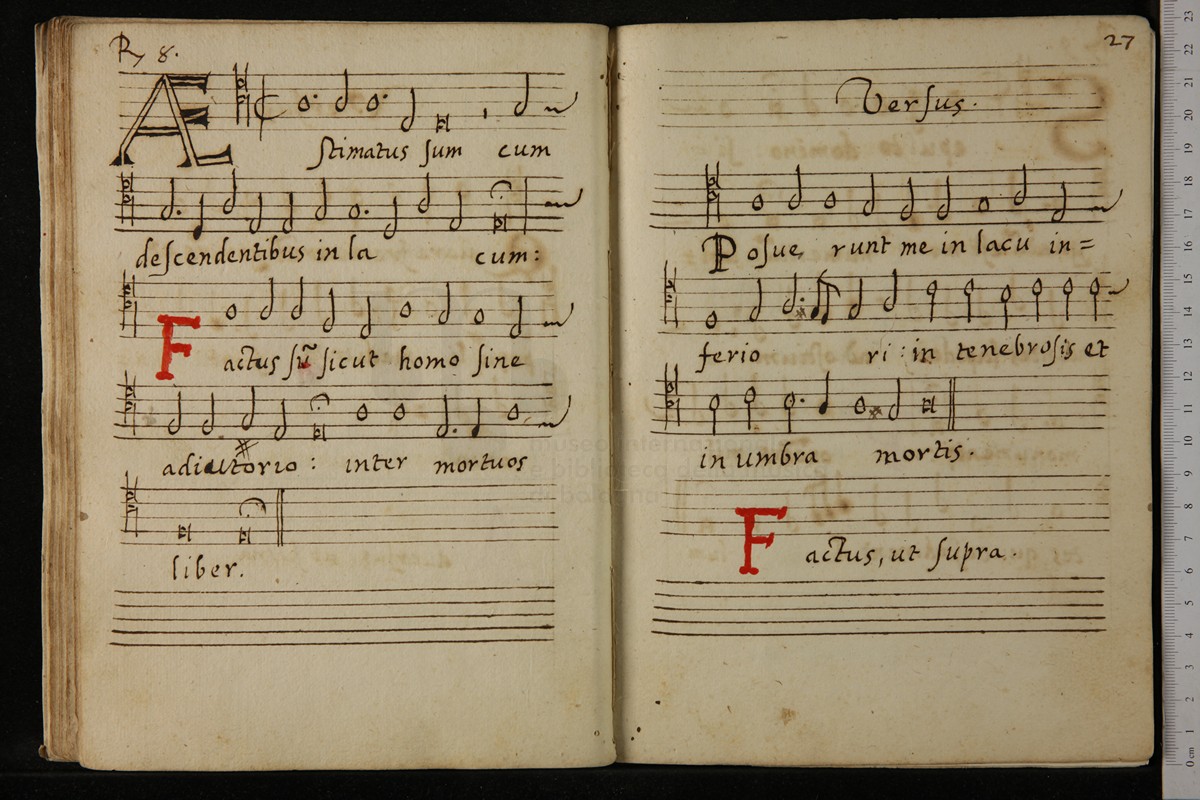 R 8.
Æ
stimatus sum cum
descendentibus in la cum:
Factus sũ sicut homo sine
adiutorio: inter mortuos
liber.
27
Versus.
Posue runt me in lacu in=
ferio ri: in tenebrosis et
in umbra mortis.
Factus, ut supra.
museo internazionale
e biblioteca della musica
di bologna
0 cm 1 2 3 4 5 6 7 8 9 10 11 12 13 14 15 16 17 18 19 20 21 22 23